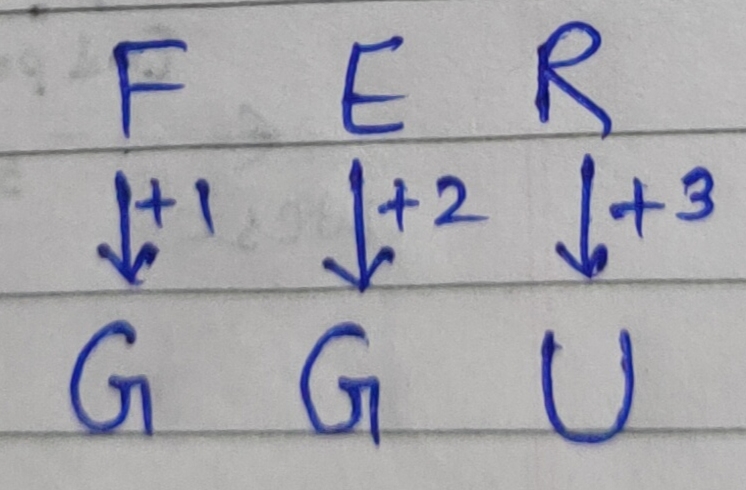 F E R
↓+1 ↓+2 ↓+3
G G U